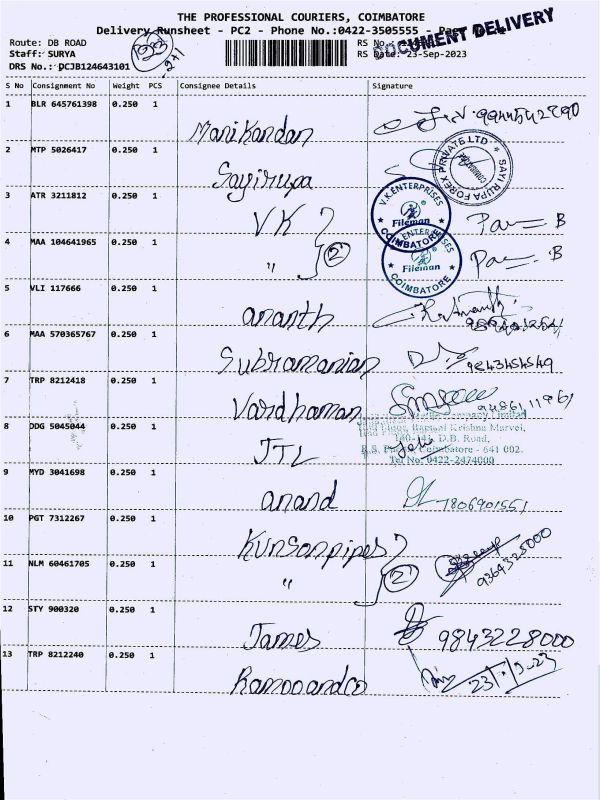 THE PROFESSIONAL COURIERS, COIMBATORE
Delivery Runsheet - PC2 - Phone No.:0422-3505555
DOCUMENT DELIVERY
Route: DB ROAD
RS No.:
Staff: SURYA
RS Date: 23-Sep-2023
DRS No.: DCJB124643101
S No Consignment No Weight PCS Consignee Details Signature
1 BLR 645761398 0.250 1 Manikandan
2 MTP 5026417 0.250 1 Sayirupa
SAYI RUPA FOREX PRIVATE LTD
3 ATR 3211812 0.250 1 VK
V.K.ENTERPRISES Fileman COIMBATORE
4 MAA 104641965 0.250 1 " 2
Fileman COIMBATORE
5 VLI 117666 0.250 1 ananth
6 MAA 570365767 0.250 1 Subramanian
7 TRP 8212418 0.250 1 Vardhaman
8 DDG 5045044 0.250 1 JTL
D.B. Road,
Coimbatore - 641 002.
Tel No: 0422-2474000
9 MYD 3041698 0.250 1 anand 7806901551
10 PGT 7312267 0.250 1 Kunsonpipes
11 NLM 60461705 0.250 1 " 2
9364325000
12 STY 900320 0.250 1 James 9843228000
13 TRP 8212240 0.250 1 Ramooandco